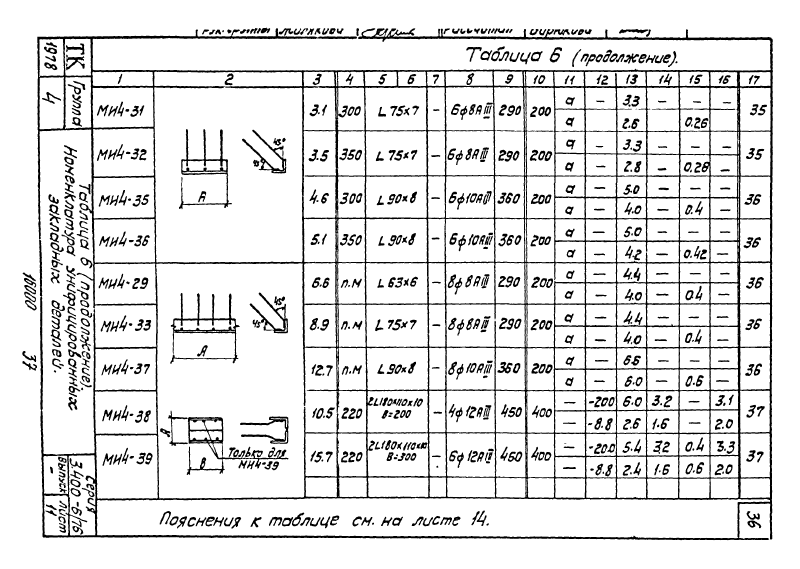 Таблица 6 (продолжение).
1 2 3 4 5 6 7 8 9 10 11 12 13 14 15 16 17
МИ4-31 3.1 300 L 75×7 — 6ф8АIII 290 200 а — 3.3 — — — 35
а 2.6 0.26
МИ4-32 3.5 350 L 75×7 — 6ф8АIII 290 200 а — 3.3 — — — 35
а — 2.8 — 0.28 —
МИ4-35 4.6 300 L 90×8 — 6ф10АIII 360 200 а — 5.0 — — — 36
а — 4.0 — 0.4 —
МИ4-36 5.1 350 L 90×8 — 6ф10АIII 360 200 а — 5.0 — — — 36
а — 4.2 — 0.42 —
МИ4-29 6.6 п.м L 63×6 — 8ф8АIII 290 200 а — 4.4 — — — 36
а — 4.0 — 0.4 —
МИ4-33 8.9 п.м L 75×7 — 8ф8АIII 290 200 а — 4.4 — — — 36
а — 4.0 — 0.4 —
МИ4-37 12.7 п.м L 90×8 — 8ф10АIII 360 200 а — 6.6 — — — 36
а — 6.0 — 0.6 —
МИ4-38 10.5 220 2L180×110×10 В=200 — 4ф12АIII 450 400 — -200 6.0 3.2 — 3.1 37
— -8.8 2.6 1.6 — 2.0
МИ4-39 15.7 220 2L180×110×10 В=300 — 6ф12АIII 450 400 — -200 5.4 3.2 0.4 3.3 37
— -8.8 2.4 1.6 0.6 2.0
45° 45°
А
45° 45°
А
В
Только для
МИ4-39
Пояснения к таблице см. на листе 14.
36
ТК
1978
Группа
4
Таблица 6 (продолжение).
Номенклатура унифицированных
закладных деталей.
Серия
3.400-6/76
Выпуск Лист
- 11
16000 37